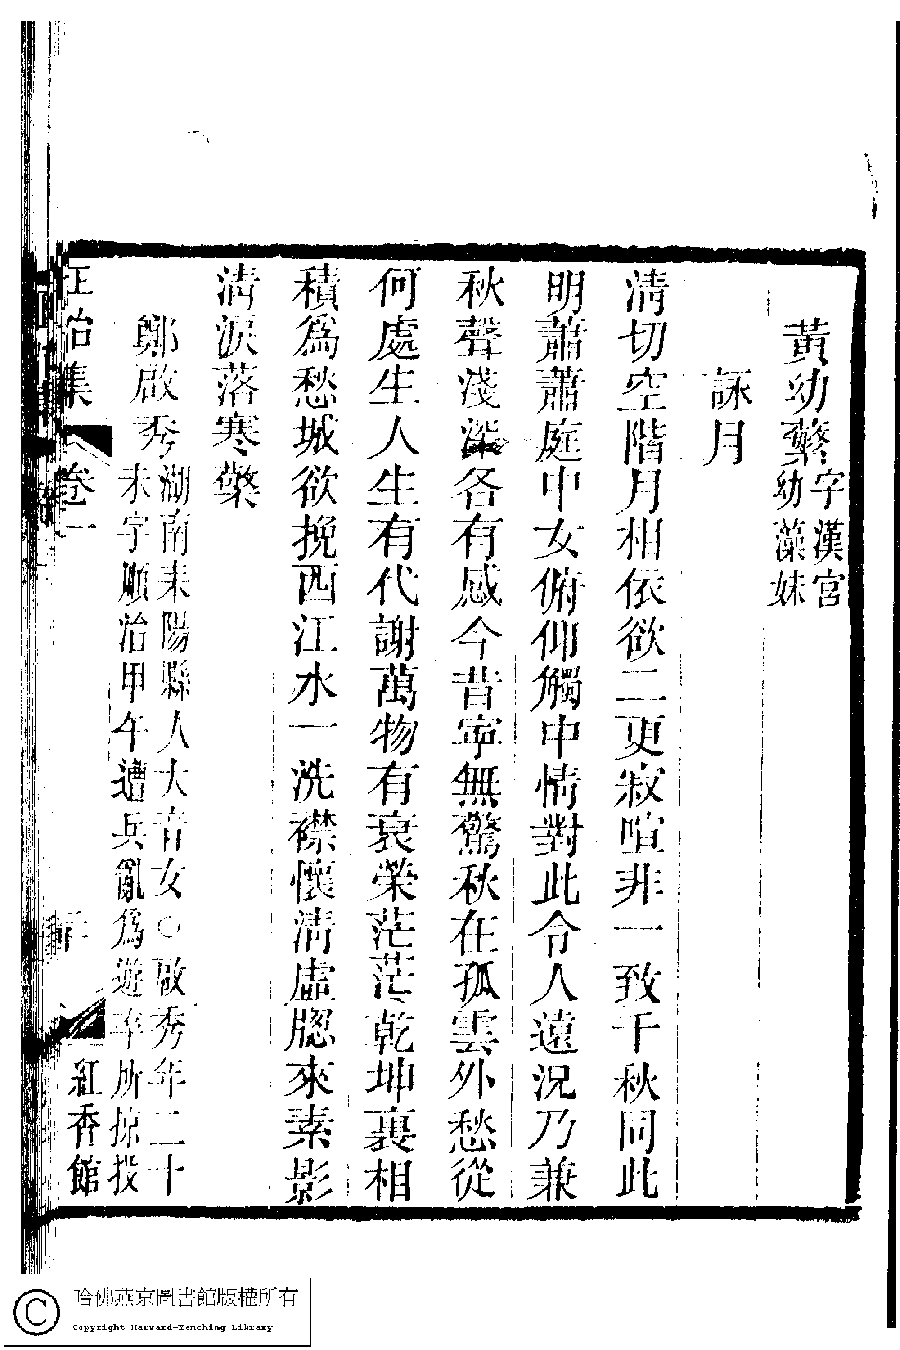 黃幼蘩字漢宮
幼藻妹
詠月
清切空階月相依欲二更寂喧非一致千秋同此
明蕭蕭庭中女俯仰觸中情對此令人遠況乃兼
秋聲淺深各有感今昔寧無驚秋在孤雲外愁從
何處生人生有代謝萬物有衰榮茫茫乾坤裏相
積為愁城欲挽西江水一洗襟懷清虛牎來素影
清淚落寒檠
鄭啟秀湖南耒陽縣人大音女○啟秀年二十
未字順治甲午遭兵亂為遊卒所掠投
正始集 卷一 紅香館
哈佛燕京圖書館版權所有
Copyright Harvard-Yenching Library